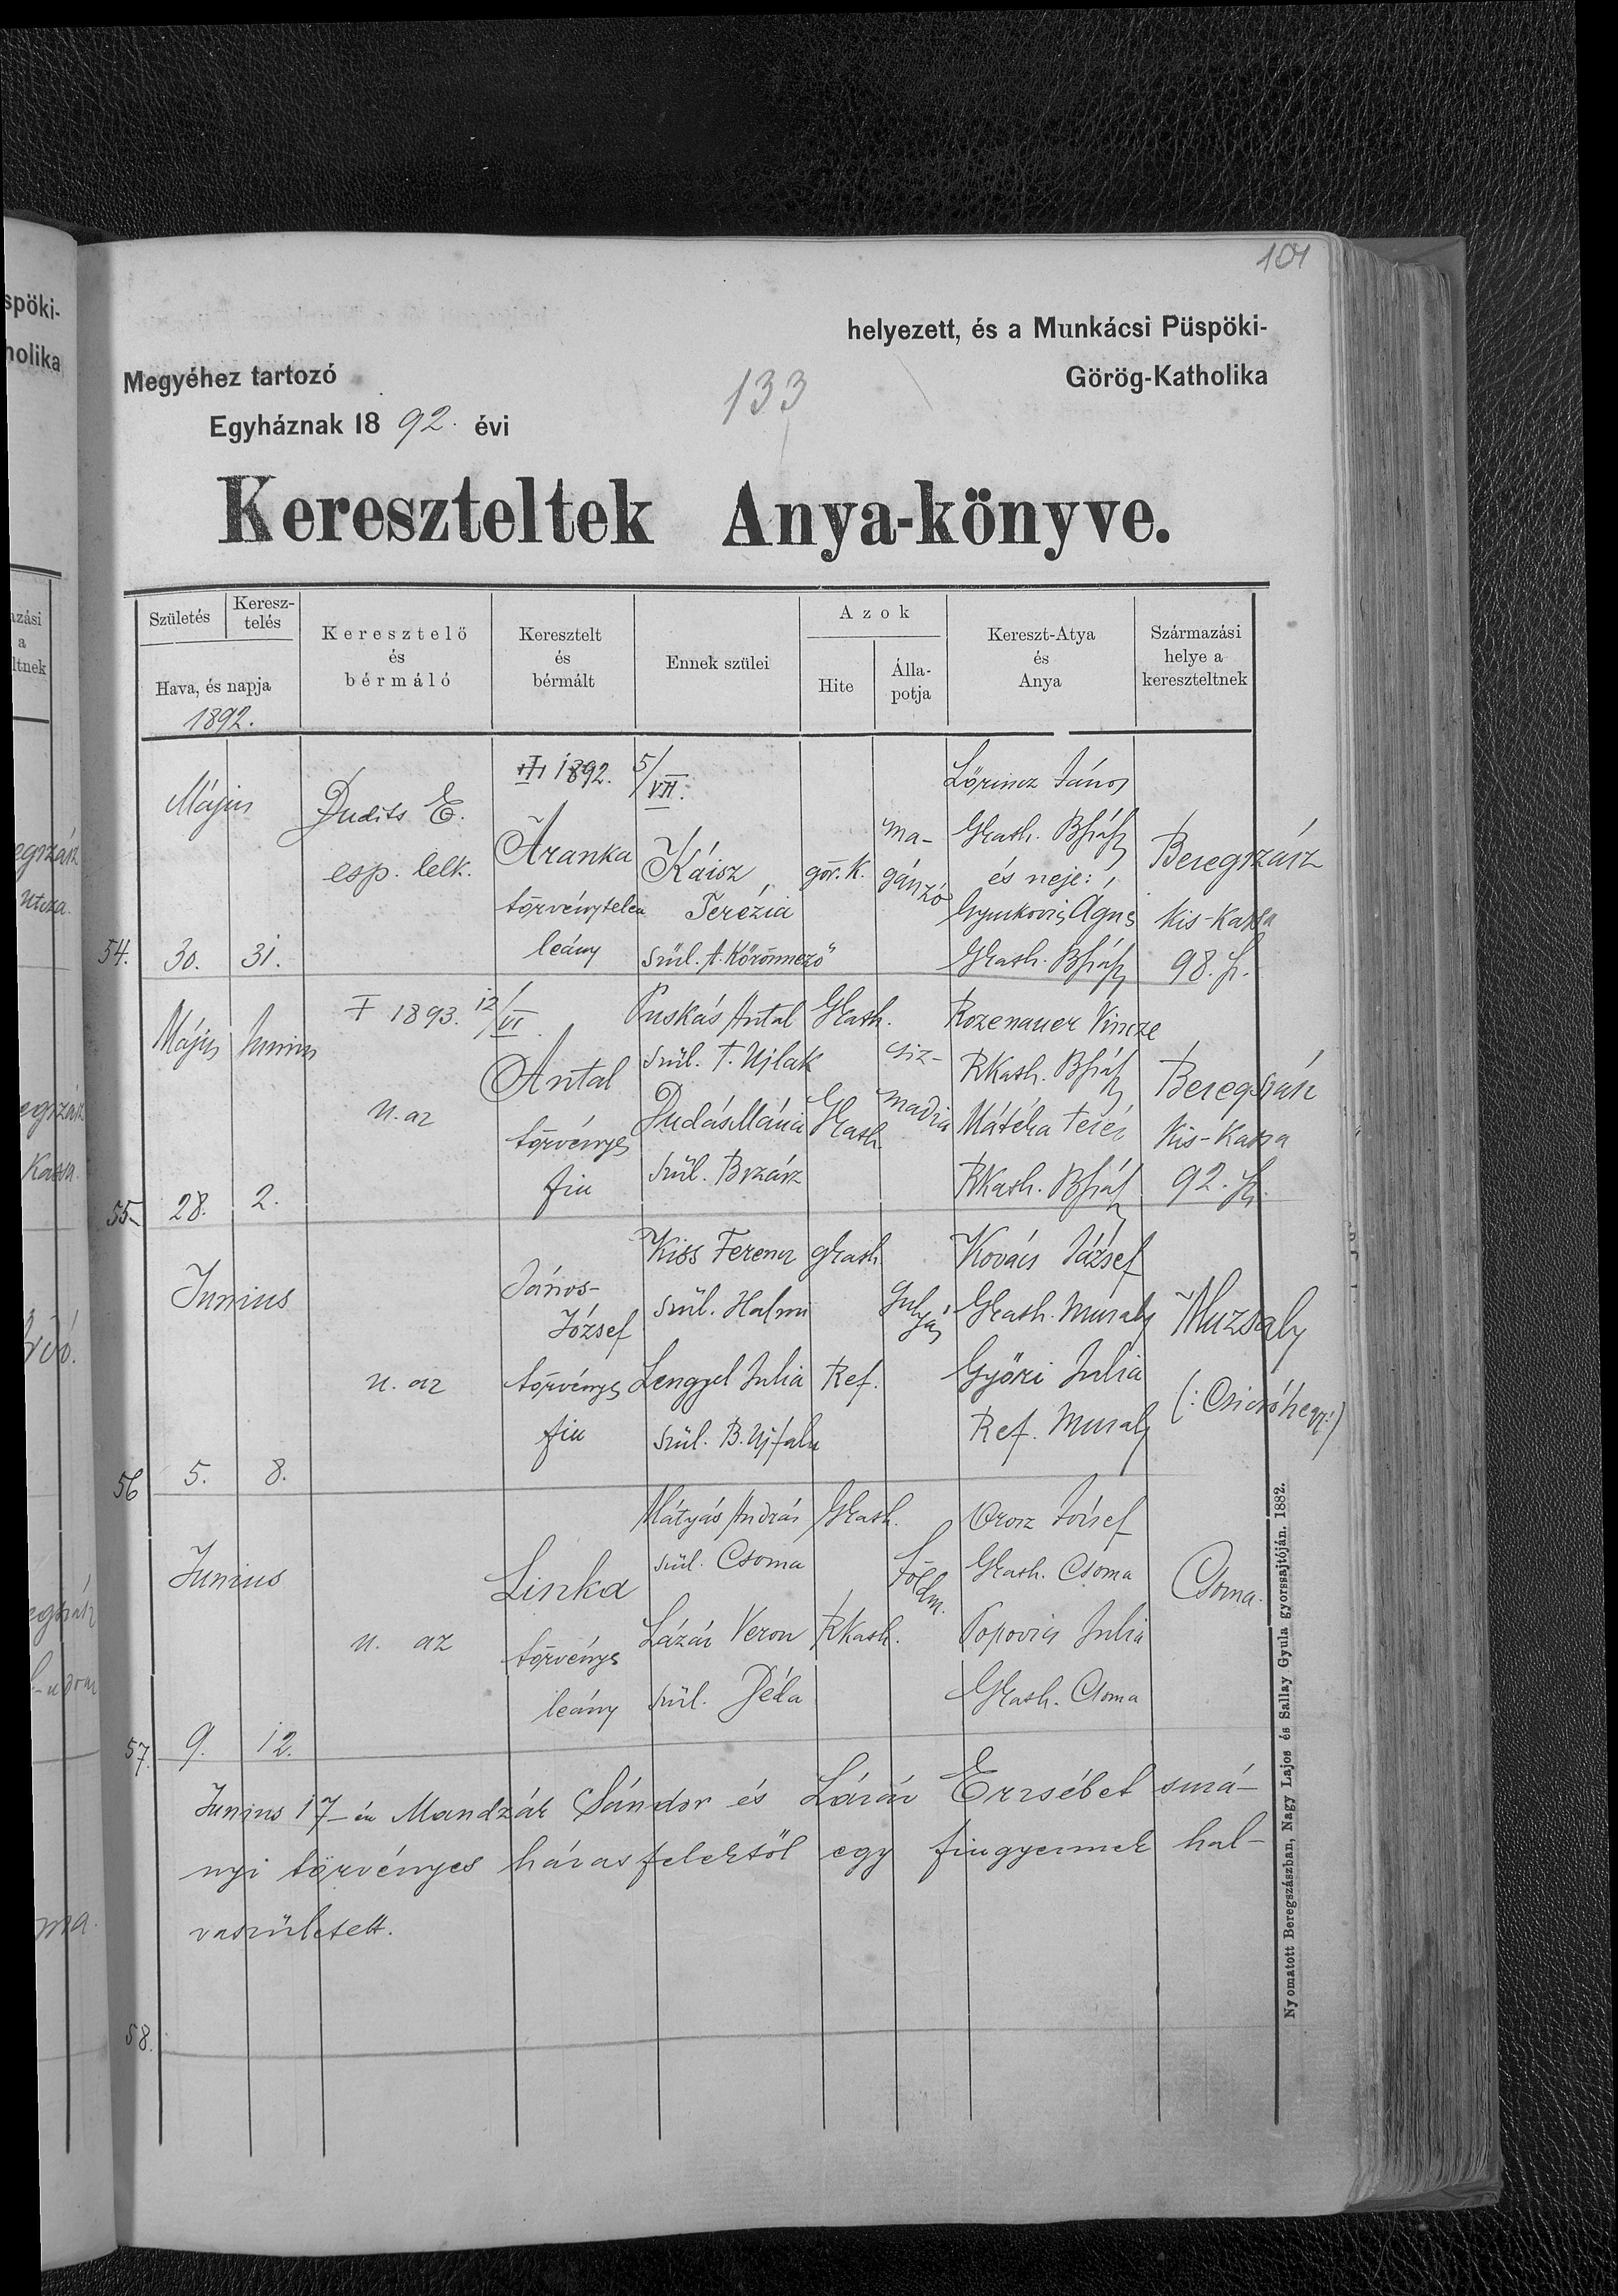 101
helyezett, és a Munkácsi Püspöki-
Megyéhez tartozó
Görög-Katholika
133
Egyháznak 1892. évi
Kereszteltek Anya-könyve.
Születés
Keresz-
telés
Hava, és napja
1892.
Keresztelő
és
bérmáló
Keresztelt
és
bérmált
Ennek szülei
Azok
Hite
Álla-
potja
Kereszt-Atya
és
Anya
Származási
helye a
kereszteltnek
54.
Május
30. 31.
Dudits E.
esp. lelk.
1892. 5/VII.
Aranka
törvénytelen
leány
Káisz
Terézia
szül. A. Körönmező
gör. k.
ma-
gánzó
Lőrincz János
Gkath. Bszász
és neje:
Gyurkovis Ágnes
Gkath. Bszász
Beregszász
Kis-Kassa
98. sz.
55.
Május Junius
28. 2.
u. az
† 1893. 12/VI.
Antal
törvényes
fiu
Puskás Antal
szül. T. Ujlak
Dudás Mária
szül. Bszász
Gkath.
Gkath
csiz-
madia
Rozenauer Vincze
Rkath. Bszász
Mátéka Teréz
Rkath. Bszász
Beregszász
Kis-Kassa
92. sz.
56
Junius
5. 8.
u. az
János-
József
törvényes
fiu
Kiss Ferencz
szül. Halmi
Lengyel Julia
szül. B. Ujfalu
gkath.
Ref.
gulyás
Kovács József
Gkath. Muzsaly
Győri Julia
Ref. Muzsaly
Muzsaly
57.
Junius
9. 12.
u. az
Linka
törvényes
leány
Mátyás András
szül. Csoma
Lázár Veron
szül. Déda
Gkath.
Rkath.
Földm.
Orosz József
Gkath. Csoma
Popovics Julia
Gkath. Csoma
Csoma.
Junius 17-én Mandzák Sándor és Lázár Erzsébet surá-
nyi törvényes házasfelektöl egy fiugyermek hal-
vaszületett.
58.
Nyomatott Beregszászban, Nagy Lajos és Sallay Gyula gyorssajtóján. 1882.
spöki-
holika
azási
a
ltnek
egszász
utcza.
egszász
Kassa
egszász
ma.